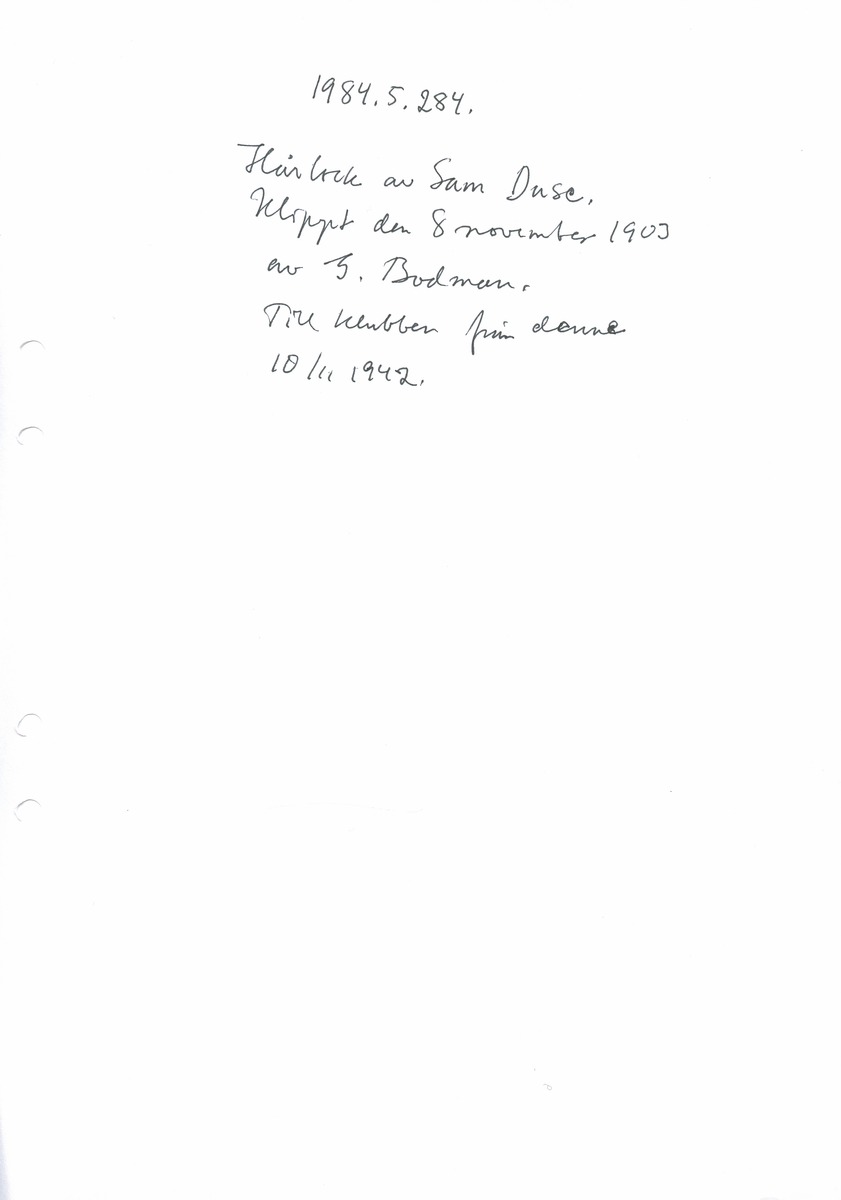 1984.5.284.
Hårlock av Sam Duse.
Klippt den 8 november 1903
av G. Bodman.
Till klubben från denne
10/11 1942.